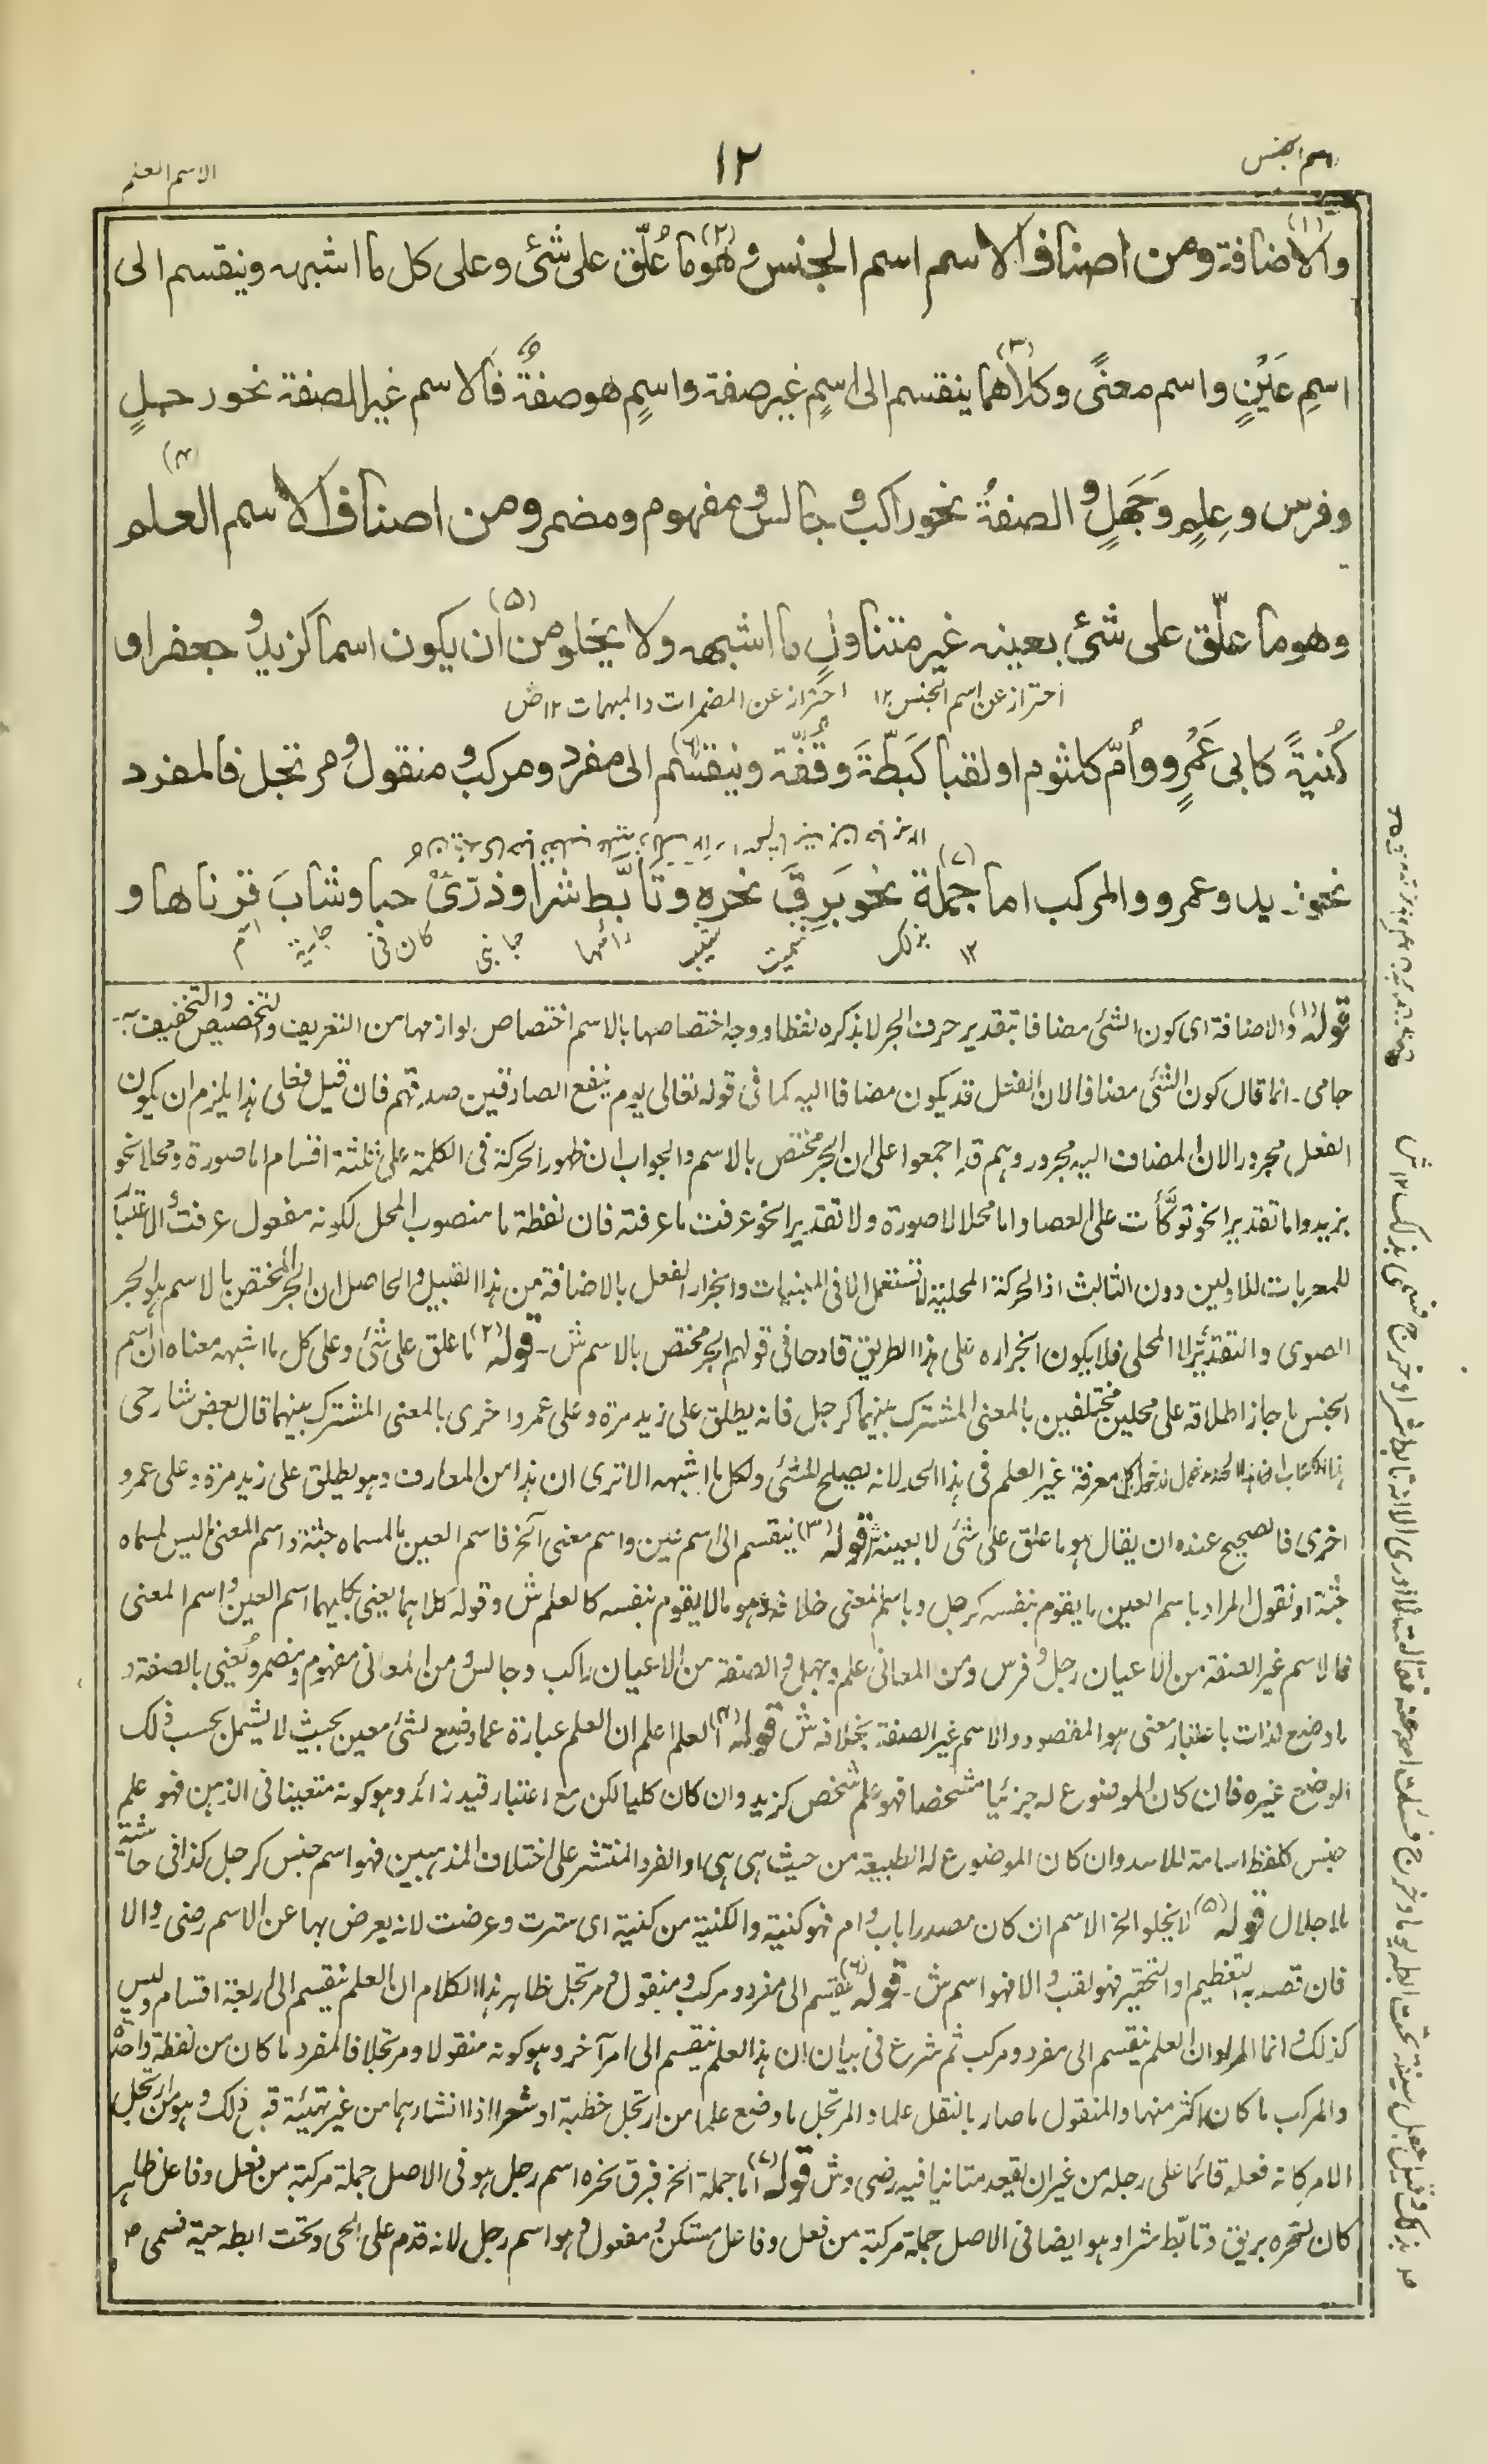 اسم الجنس
١٢
الاسم العلم
والاضافة (١) ومن اصناف الاسم اسم الجنس وهو (٢) ما عُلّق على شئ وعلى كل ما اشبهه وينقسم الى
اسمِ عَيْنٍ واسم معنًى وكلاهما (٣) ينقسم الى اسمٍ غير صفة واسمٍ هو صفةٌ فالاسم غير الصفة نحو رجلٍ
وفرس وعِلمٍ وجَهلٍ والصفةُ نحو راكب وجالس ومفهوم ومضمر ومن اصناف الاسم العلم (٤)
وهو ما علّق على شئ بعينه غير متناولٍ ما اشبهه ولا يخلو (٥) من ان يكون اسما كزيدٍ وجعفر او
احتراز عن اسم الجنس ١٢ احتراز عن المضمرات والمبهمات ١٢ ض
كُنيةً كابى عَمْرٍو وأُمّ كلثوم او لقبا كَبَطّةَ وقُفّة وينقسم (٦) الى مفرد ومركب ومنقول ومرتجل فالمفرد
نحو زيد وعمرو والمركب اما جملة (٧) نحو بَرِقَ نحره وتَأبَّط شرا وذرّىٰ حبا وشابَ قرناها و
قوله (١) والاضافة اى كون الشئ مضافا بتقدير حرف الجر لا بذكره لفظا ووجه اختصاصها بالاسم اختصاص لوازمها من التعريف والتخصيص والتخفيف
جامى۔ انما قال كون الشئ مضافا لان الفعل قد يكون مضافا اليه كما فى قوله تعالى يوم ينفع الصادقين صدقهم فان قيل فعلى هذا يلزم ان يكون
الفعل مجرورا لان المضاف اليه مجرور وهم قد اجمعوا على ان الجر مختص بالاسم والجواب ان ظهور الحركة فى الكلمة على ثلثة اقسام اما صورة ومحلا نحو
بزيد واما تقديرا نحو توكّأت على العصا واما محلا لا صورة ولا تقديرا نحو عرفت ما عرفته فان لفظة ما منصوب المحل لكونه مفعول عرفت والاعتبار
للمعربات للاولين دون الثالث اذ الحركة المحلية لا تستعمل الا فى المبنيات وانجرار الفعل بالاضافة من هذا القبيل والحاصل ان الجر المختص بالاسم هو الجر
الصورى والتقديرى لا المحلى فلا يكون انجراره على هذا الطريق قادحا فى قولهم الجر مختص بالاسم ش۔ قوله (٢) ما علق على شئ وعلى كل ما اشبهه معناه ان اسم
الجنس ما جاز اطلاقه على محلين مختلفين بالمعنى المشترك بينهما كرجل فانه يطلق على زيد مرة وعلى عمرو اخرى بالمعنى المشترك بينهما قال بعض شارحى
هذا الكتاب ان هذا الحد مدخول لدخول كل معرفة غير العلم فى هذا الحد لانه يصلح للشئ ولكل ما اشبهه الا ترى ان هذا من المعارف وهو يطلق على زيد مرة وعلى عمرو
اخرى فالصحيح عنده ان يقال هو ما علق على شئ لا بعينه ش قوله (٣) ينقسم الى اسم عين واسم معنى آلخ فاسم العين ما لمسماه جثة واسم المعنى ما ليس لمسماه
جثة او نقول المراد باسم العين ما يقوم بنفسه كرجل وباسم المعنى خلافه وهو ما لا يقوم بنفسه كالعلم ش وقوله كلاهما يعنى بكليهما اسم العين واسم المعنى
فالاسم غير الصفة من الاعيان رجل وفرس ومن المعانى علم وجهل والصفة من الاعيان راكب وجالس ومن المعانى مفهوم ومضمر ونعنى بالصفة
ما وضع لذات باعتبار معنى هو المقصود والاسم غير الصفة بخلافه ش قوله (٤) العلم اعلم ان العلم عبارة عما وضع لشئ معين بحيث لا يشمل بحسب ذلك
الوضع غيره فان كان الموضوع له جزئيا مشخصا فهو علم شخص كزيد وان كان كليا لكن مع اعتبار قيد زائد وهو كونه متعينا فى الذهن فهو علم
جنس كلفظ اسامة للاسد وان كان الموضوع له الطبيعة من حيث هى هى او الفرد المنتشر على اختلاف المذهبين فهو اسم جنس كرجل كذا فى حاشية
ملا جلال قوله (٥) لا يخلو الخ الاسم ان كان مصدرا باب وام فهو كنية والكنية من كنية اى سترت وعرضت لانه يعرض بها عن الاسم رضى والا
فان قصد به التعظيم او التحقير فهو لقب والا فهو اسم ش۔ قوله (٦) ينقسم الى مفرد ومركب ومنقول ومرتجل ظاهر هذا الكلام ان العلم ينقسم الى اربعة اقسام وليس
كذلك وانما المراد ان العلم ينقسم الى مفرد ومركب ثم شرع فى بيان ان هذا العلم ينقسم الى امر آخر وهو كونه منقولا ومرتجلا فالمفرد ما كان من لفظة واحدة
والمركب ما كان اكثر منها والمنقول ما صار بالنقل علما والمرتجل ما وضع علما من ارتجل خطبة او شعرا اذا انشارهما من غير تهيئة قبل ذلك وهو من ارتجل
الامر كانه فعله قائما على رجله من غير ان يقعد متانيا فيه رضى وش قوله (٧) اما جملة الخ فبرق نحره اسم رجل هو فى الاصل جملة مركبة من فعل وفاعل ظاهر
كان لنحره بريق وتابّط شرا وهو ايضا فى الاصل جملة مركبة من فعل وفاعل مستكن ومفعول وهو اسم رجل لانه قدم على الحى وتحت ابطه حية فسمى